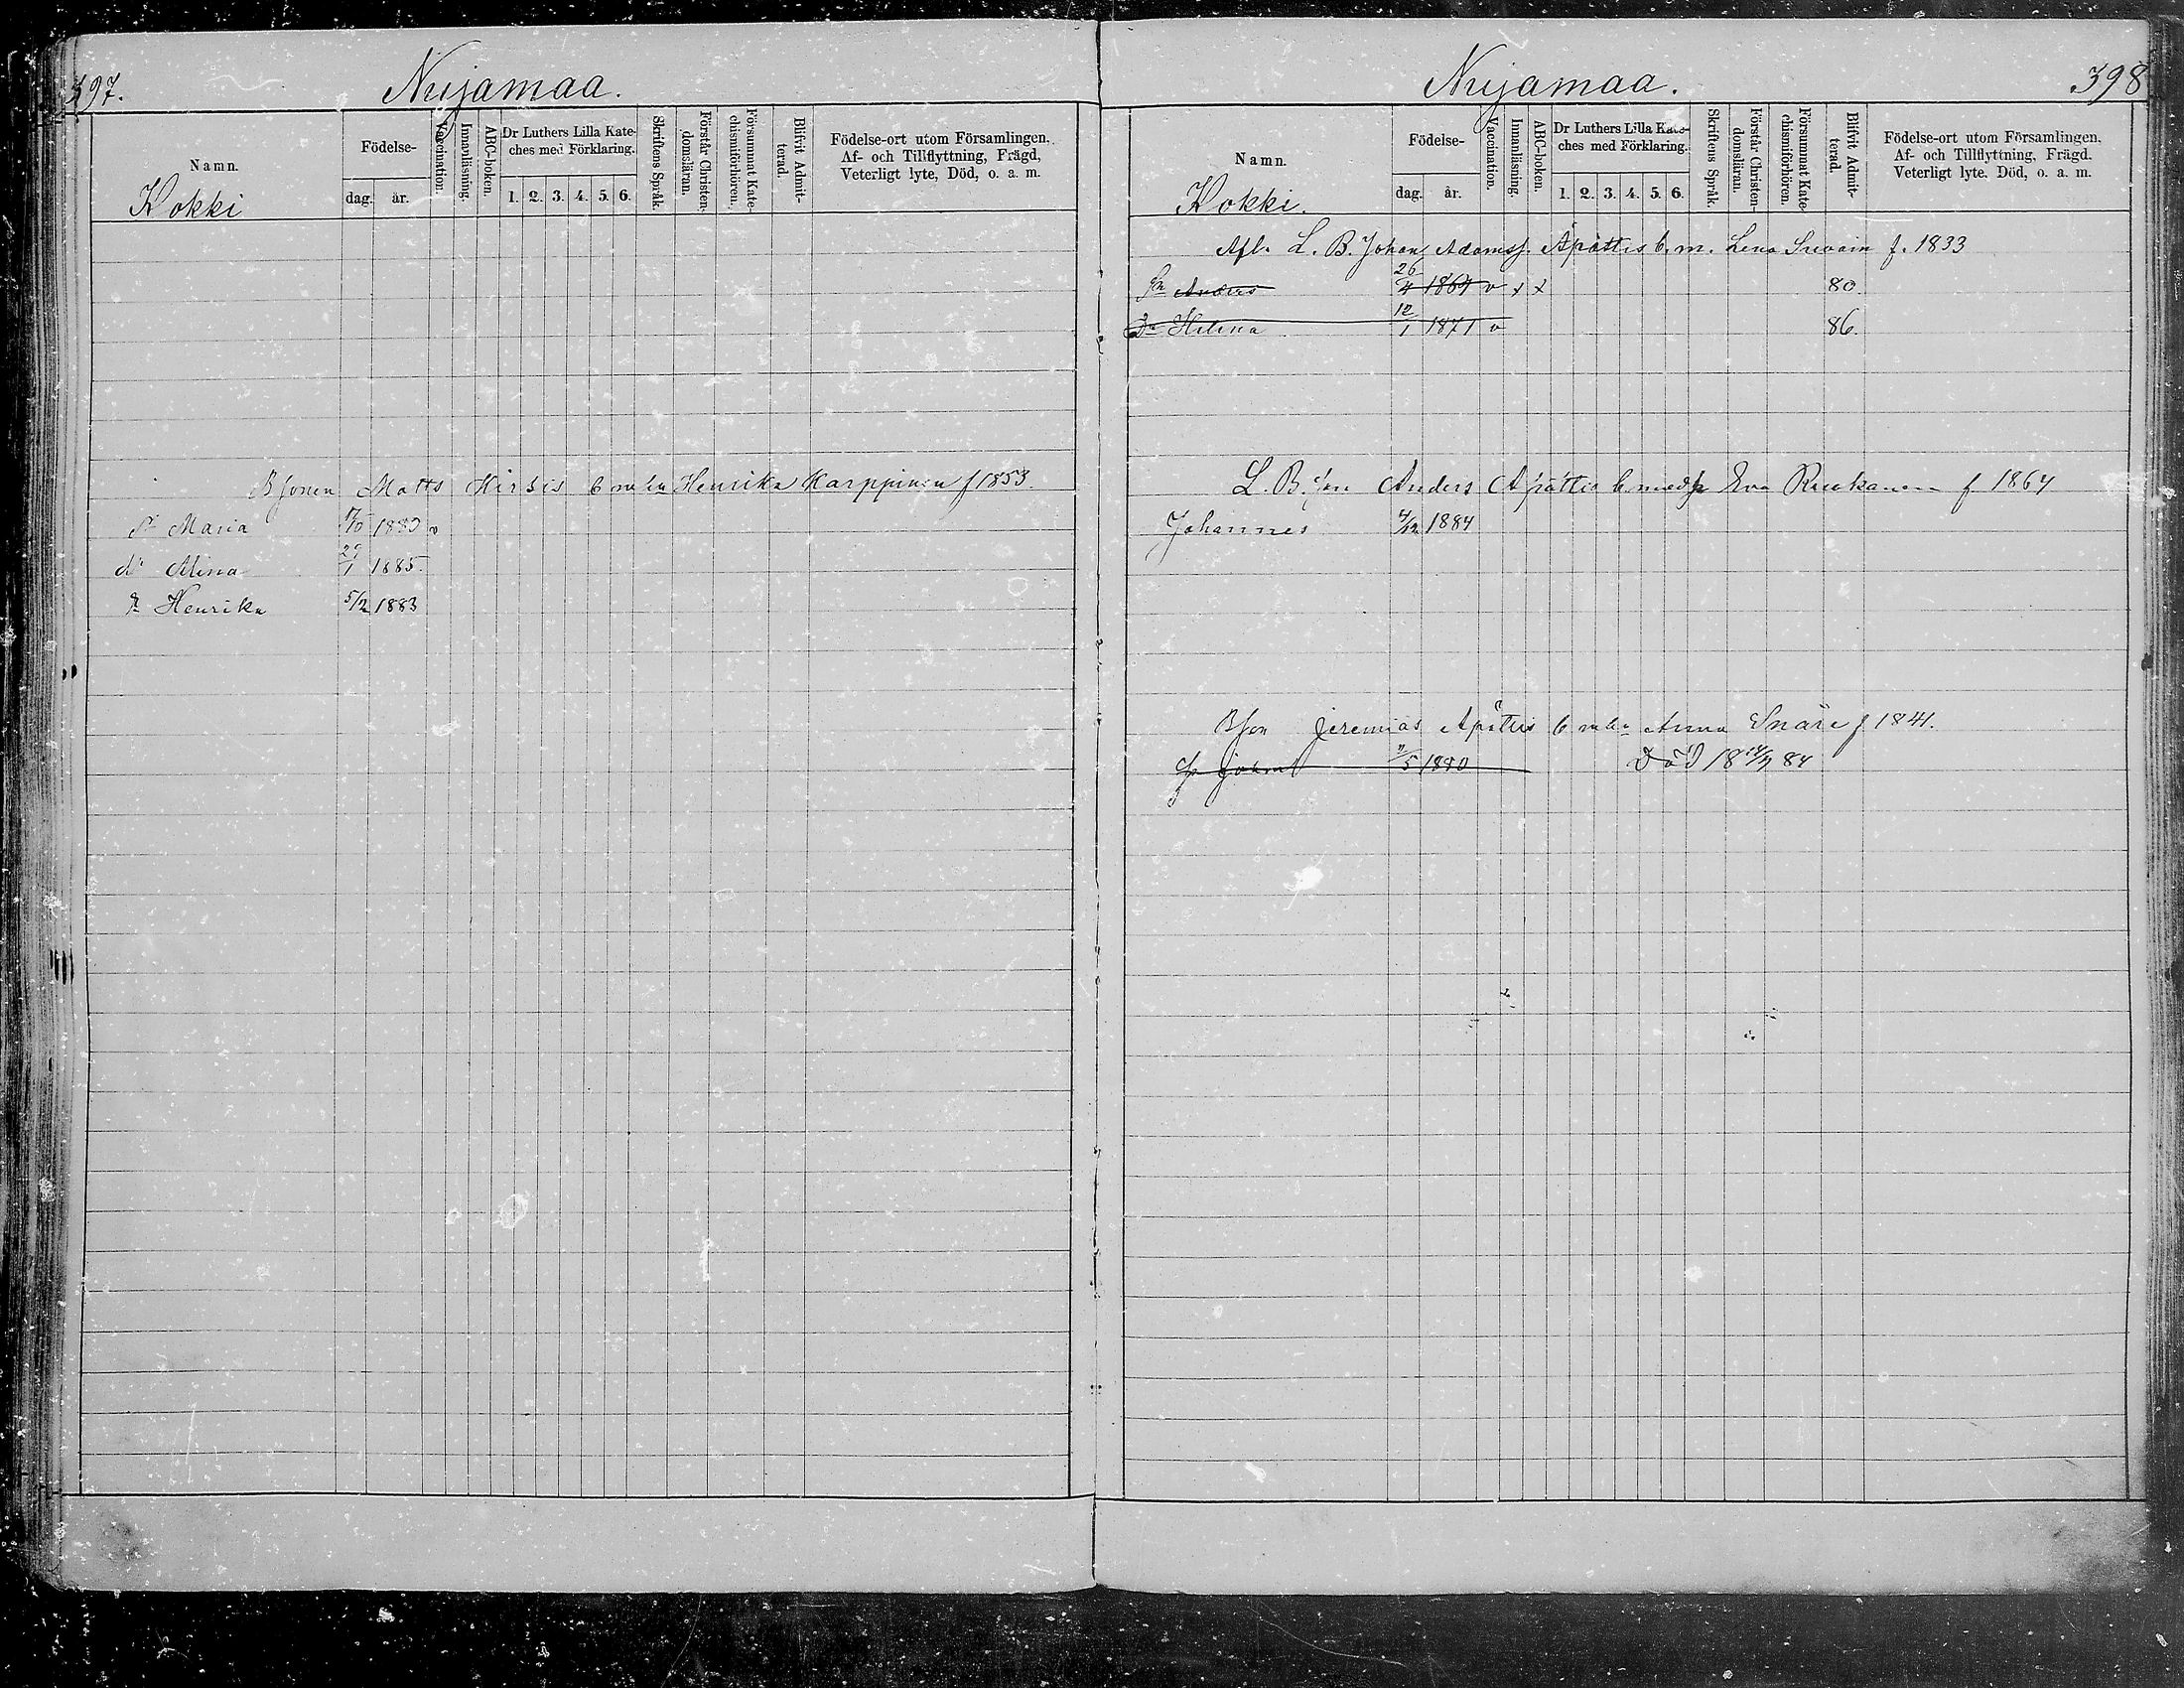 397.
Nuijamaa.
Namn.
Födelse-
dag. år.
Vaccination.
Innanläsning.
ABC-boken.
Dr Luthers Lilla Kate-
ches med Förklaring.
1. 2. 3. 4. 5. 6.
Skriftens Språk.
Förstår Christen-
domsläran.
Försummat Kate-
chismiförhören.
Blifvit Admit-
terad.
Födelse-ort utom Församlingen,
Af- och Tillflyttning, Frägd,
Veterligt lyte, Död, o. a. m.
Kokki
Bsonen Matts Hirsis Henrika Karppinen f 1853.
Maria 1880 v
dr Alina 29/1 1885.
Henrika 5/2 1883
Nuijamaa.
398
Namn.
Födelse-
dag. år.
Vaccination.
Innanläsning.
ABC-boken.
Dr Luthers Lilla Kate-
ches med Förklaring.
1. 2. 3. 4. 5. 6.
Skriftens Språk.
Förstår Christen-
domsläran.
Försummat Kate-
chismiförhören.
Blifvit Admit-
terad.
Födelse-ort utom Församlingen,
Af- och Tillflyttning, Frägd.
Veterligt lyte. Död, o. a. m.
Kokki.
Afl. L. B. Johan Adamss. Apåttis h. m. Lena f. 1833
Sn Anders 26/4 1864 v x x 80.
Dr Helena 12/1 1871 v 86.
L. B. son Anders Apåttis Eva Ruokanen f. 1864
Johannes 4/12 1884
Bson Jeremias Apåttis Anna Snäre f 1841.
1880 Död 18 84